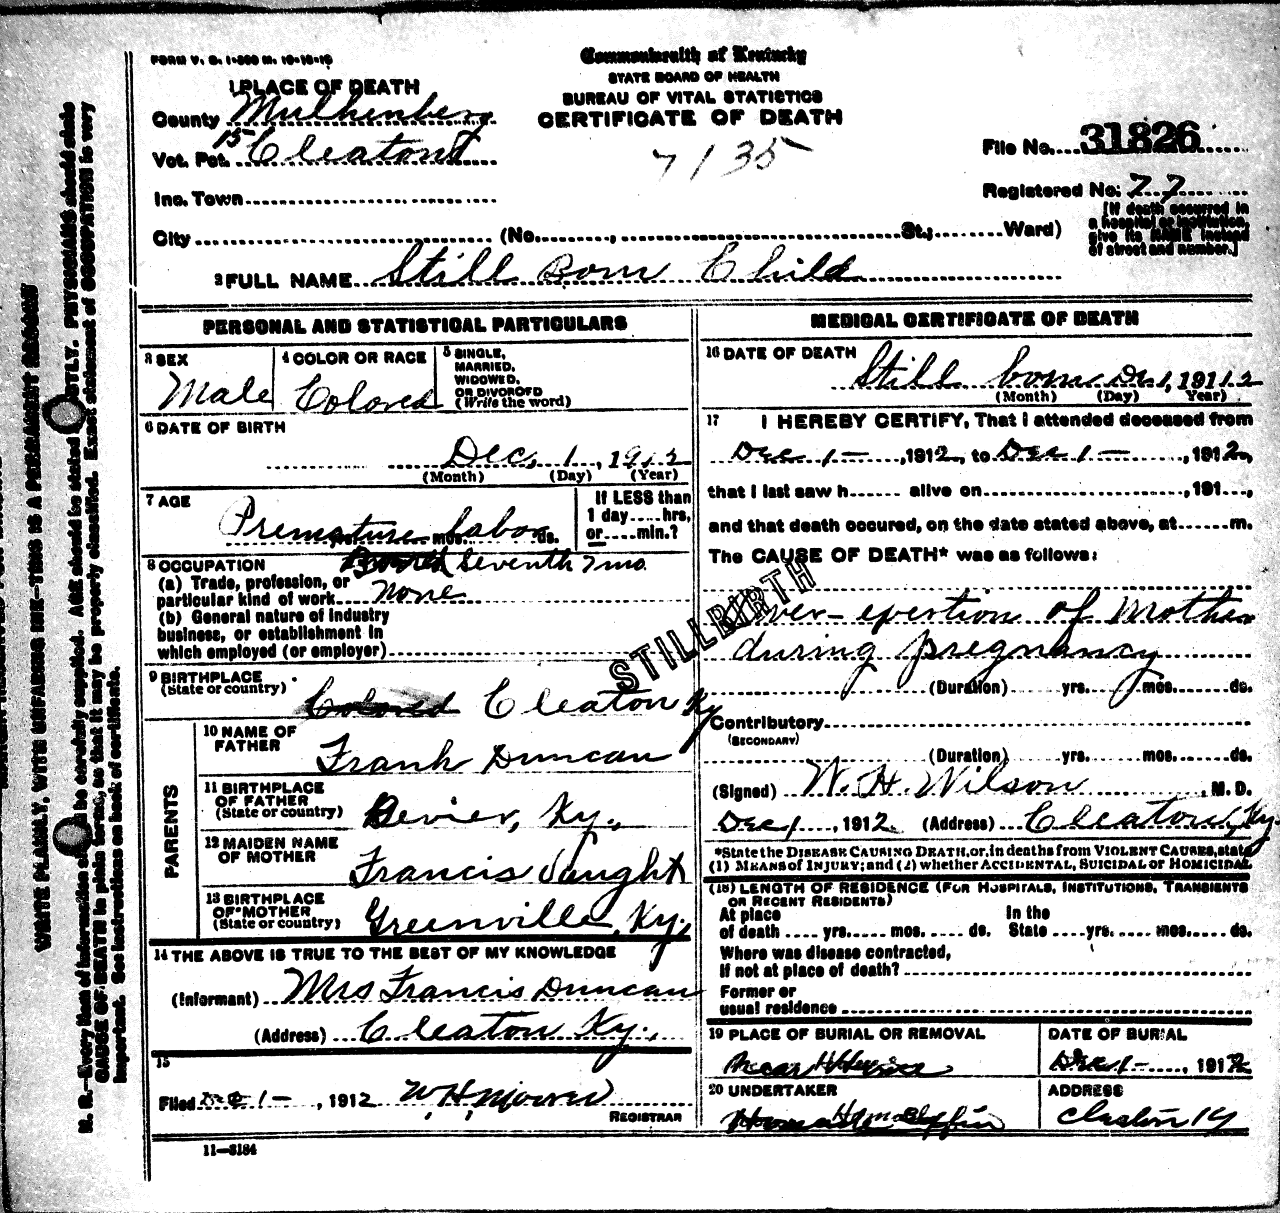 FORM V. S. 1-
Commonwealth of Kentucky
STATE BOARD OF HEALTH
BUREAU OF VITAL STATISTICS
CERTIFICATE OF DEATH
1 PLACE OF DEATH
County Muhlenberg
Vot. Pct. 15 Cleaton
7135
File No. 31826
Registered No. 77
Inc. Town
City (No. , St.; Ward)
[If death occurred in
a hospital or institution,
give its NAME instead
of street and number.]
2 FULL NAME Still Born Child
PERSONAL AND STATISTICAL PARTICULARS
3 SEX
Male
4 COLOR OR RACE
Colored
5 SINGLE,
MARRIED,
WIDOWED,
OR DIVORCED
(Write the word)
6 DATE OF BIRTH
Dec. 1, 1912
(Month) (Day) (Year)
7 AGE
Premature labor
mos. ds.
If LESS than
1 day....hrs,
or....min.?
Seventh 7 mo.
8 OCCUPATION
(a) Trade, profession, or
particular kind of work none
(b) General nature of industry
business, or establishment in
which employed (or employer)
9 BIRTHPLACE
(State or country)
Colored Cleaton Ky
PARENTS
10 NAME OF
FATHER
Frank Duncan
11 BIRTHPLACE
OF FATHER
(State or country)
Bevier, Ky.,
12 MAIDEN NAME
OF MOTHER
Francis Vaught
13 BIRTHPLACE
OF MOTHER
(State or country)
Greenville, Ky.,
14 THE ABOVE IS TRUE TO THE BEST OF MY KNOWLEDGE
(Informant) Mrs Francis Duncan
(Address) Cleaton Ky.,
15
Filed Dec 1-, 1912 W, H, Moores
REGISTRAR
11-3184
MEDICAL CERTIFICATE OF DEATH
16 DATE OF DEATH
Still born Dec 1, 1912
(Month) (Day) (Year)
17 I HEREBY CERTIFY, That I attended deceased from
Dec 1-, 1912, to Dec 1-, 1912,
that I last saw h alive on , 191 ,
and that death occured, on the date stated above, at m.
The CAUSE OF DEATH* was as follows:
STILLBIRTH
over-exertion of Mother
during pregnancy
(Duration) yrs. mos. ds.
Contributory
(SECONDARY)
(Duration) yrs. mos. ds.
(Signed) W. H. Wilson, M. D.
Dec 1, 1912. (Address) Cleaton, Ky.
*State the DISEASE CAUSING DEATH, or, in deaths from VIOLENT CAUSES, state
(1) MEANS of INJURY; and (2) whether ACCIDENTAL, SUICIDAL or HOMICIDAL
(18) LENGTH OF RESIDENCE (FOR HOSPITALS, INSTITUTIONS, TRANSIENTS
OR RECENT RESIDENTS)
At place
of death .... yrs. mos. ds.
In the
State yrs. mos. ds.
Where was disease contracted,
If not at place of death?
Former or
usual residence
19 PLACE OF BURIAL OR REMOVAL
Near
DATE OF BURIAL
Dec 1-, 1912
20 UNDERTAKER
ADDRESS
Cleaton Ky
N. B.—Every item of information should be carefully supplied. AGE should be stated EXACTLY. PHYSICIANS should state
CAUSE OF DEATH in plain terms, so that it may be properly classified. Exact statement of OCCUPATION is very
important. See instructions on back of certificate.
WRITE PLAINLY, WITH UNFADING INK—THIS IS A PERMANENT RECORD